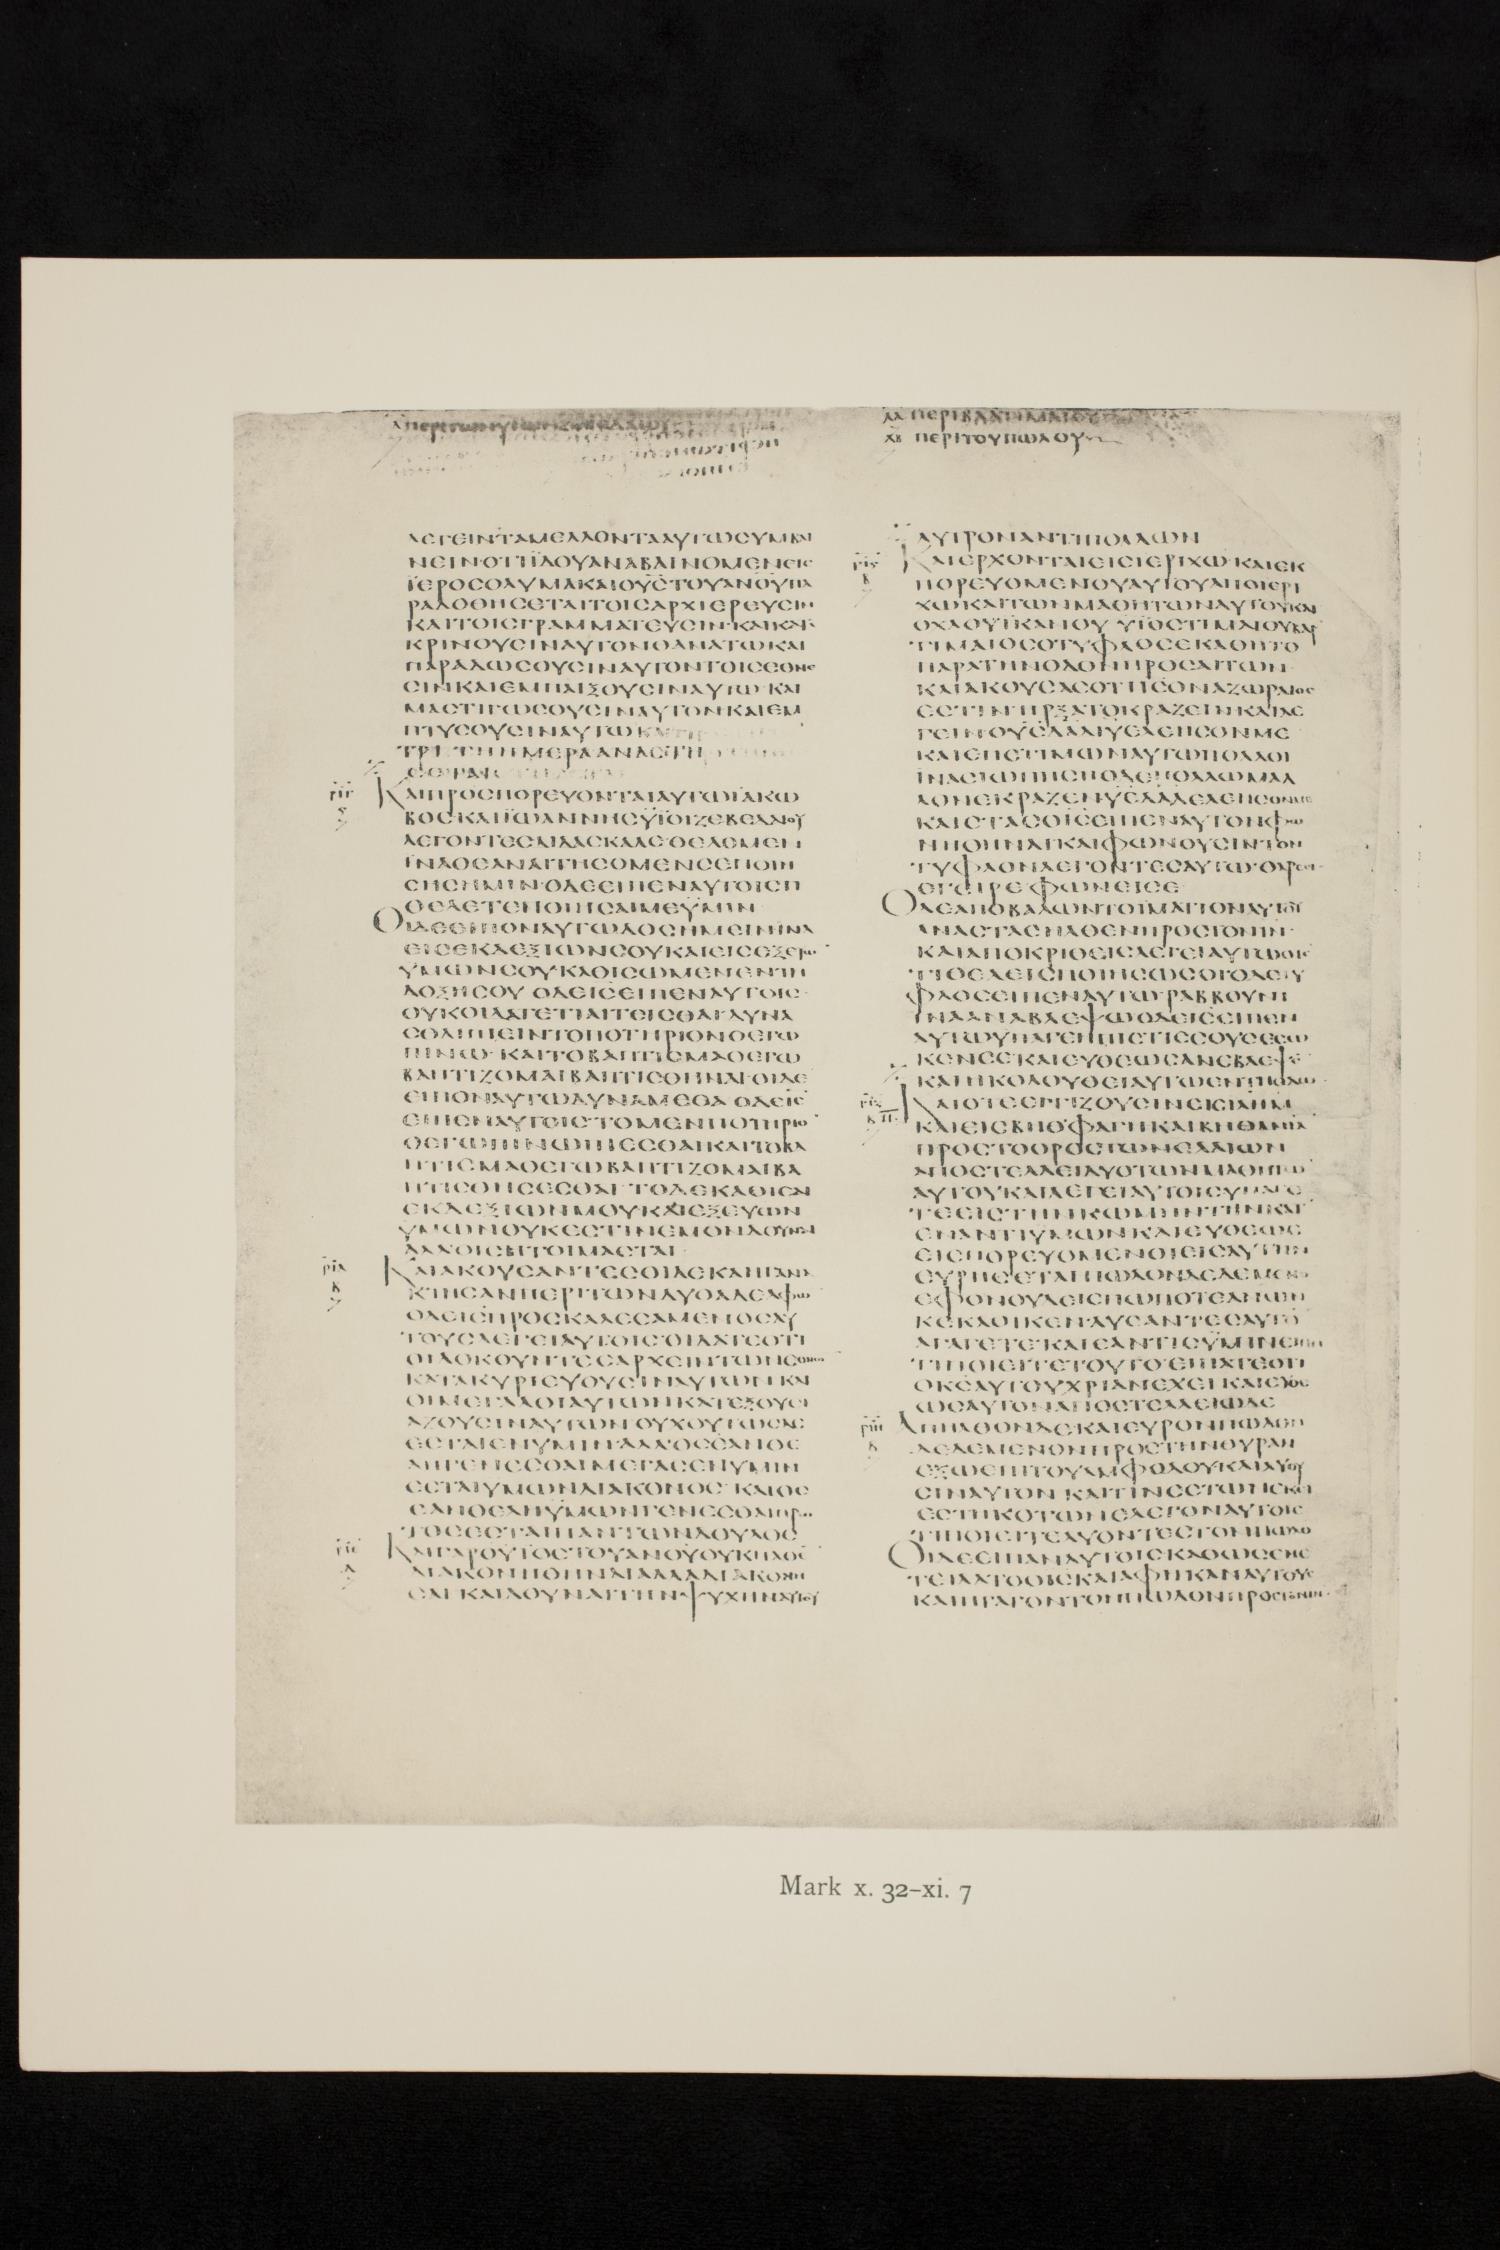 ΛΑ ΠΕΡΙ ΒΑΡΤΙΜΑΙΟΥ
ΛΒ ΠΕΡΙ ΤΟΥ ΠΩΛΟΥ
ΛΕΓΕΙΝΤΑΜΕΛΛΟΝΤΑΑΥΤΩϹΥΜΒΑΙ
ΝΕΙΝ·ΟΤΙΪΔΟΥΑΝΑΒΑΙΝΟΜΕΝΕΙϹ
ΪΕΡΟϹΟΛΥΜΑΚΑΙΟΥϹΤΟΥΑΝΟΥΠΑ
ΡΑΔΟΘΗϹΕΤΑΙΤΟΙϹΑΡΧΙΕΡΕΥϹΙΝ
ΚΑΙΤΟΙϹΓΡΑΜΜΑΤΕΥϹΙΝ·ΚΑΙΚΑΤΑ
ΚΡΙΝΟΥϹΙΝΑΥΤΟΝΘΑΝΑΤΩΚΑΙ
ΠΑΡΑΔΩϹΟΥϹΙΝΑΥΤΟΝΤΟΙϹΕΘΝΕ
ϹΙΝΚΑΙΕΜΠΑΙΞΟΥϹΙΝΑΥΤΩ·ΚΑΙ
ΜΑϹΤΙΓΩϹΟΥϹΙΝΑΥΤΟΝΚΑΙΕΜ
ΠΤΥϹΟΥϹΙΝΑΥΤΩΚΑΙΤΗ
ΤΡΙΤΗΗΜΕΡΑΑΝΑϹΤΗ
ΡΙΓ
ΚΑΙΠΡΟϹΠΟΡΕΥΟΝΤΑΙΑΥΤΩΪΑΚΩ
ΒΟϹΚΑΙΪΩΑΝΝΗϹΥΪΟΙΖΕΒΕΔΑΙΟΥ
ΛΕΓΟΝΤΕϹΔΙΔΑϹΚΑΛΕΘΕΛΟΜΕΝ
ΪΝΑΟΕΑΝΑΙΤΗϹΟΜΕΝϹΕΠΟΙΗ
ϹΗϹΗΜΙΝ·ΟΔΕΕΙΠΕΝΑΥΤΟΙϹΤΙ
ΘΕΛΕΤΕΠΟΙΗϹΑΙΜΕΫΜΙΝ
ΟΙΔΕΕΙΠΟΝΑΥΤΩΔΟϹΗΜΕΙΝΙΝΑ
ΕΙϹΕΚΔΕΞΙΩΝϹΟΥΚΑΙΕΙϹΕΞΕΥΩ
ΥΜΩΝϹΟΥΚΑΘΙϹΩΜΕΝΕΝΤΗ
ΔΟΞΗϹΟΥ ΟΔΕΙϹΕΙΠΕΝΑΥΤΟΙϹ
ΟΥΚΟΙΔΑΤΕΤΙΑΙΤΕΙϹΘΑΙ·ΔΥΝΑ
ϹΘΑΙΠΙΕΙΝΤΟΠΟΤΗΡΙΟΝΟΕΓΩ
ΠΙΝΩ·ΚΑΙΤΟΒΑΠΤΙϹΜΑΟΕΓΩ
ΒΑΠΤΙΖΟΜΑΙΒΑΠΤΙϹΘΗΝΑΙ·ΟΙΔΕ
ΕΙΠΟΝΑΥΤΩΔΥΝΑΜΕΘΑ ΟΔΕΙϹ
ΕΙΠΕΝΑΥΤΟΙϹ·ΤΟΜΕΝΠΟΤΗΡΙΟ
ΟΕΓΩΠΙΝΩΠΙΕϹΘΑΙΚΑΙΤΟΒΑ
ΠΤΙϹΜΑΟΕΓΩΒΑΠΤΙΖΟΜΑΙΒΑ
ΠΤΙϹΘΗϹΕϹΘΑΙ·ΤΟΔΕΚΑΘΙϹΑΙ
ΕΚΔΕΞΙΩΝΜΟΥΚΑΙΕΞΕΥΩΝ
ΥΜΩΝΟΥΚΕϹΤΙΝΕΜΟΝΔΟΥΝΑΙ
ΑΛΛΟΙϹΗΤΟΙΜΑϹΤΑΙ
ΡΙΔ
Β
ΚΑΙΑΚΟΥϹΑΝΤΕϹΟΙΔΕΚΑΗΓΑΝΑ
ΚΤΗϹΑΝΠΕΡΙΤΩΝΔΥΟΑΔΕΛΦΩ
ΟΔΕΙϹΠΡΟϹΚΑΛΕϹΑΜΕΝΟϹΑΥ
ΤΟΥϹΛΕΓΕΙΑΥΤΟΙϹ·ΟΙΔΑΤΕΟΤΙ
ΟΙΔΟΚΟΥΝΤΕϹΑΡΧΕΙΝΤΩΝΕΘΝΩ
ΚΑΤΑΚΥΡΙΕΥΟΥϹΙΝΑΥΤΩΝΚΑΙ
ΟΙΜΕΓΑΛΟΙΑΥΤΩΝΚΑΤΕΞΟΥϹΙ
ΑΖΟΥϹΙΝΑΥΤΩΝΟΥΧΟΥΤΩϹΔΕ
ΕϹΤΑΙΕΝΥΜΙΝ·ΑΛΛΟϹΕΑΝΘΕ
ΛΗΓΕΝΕϹΘΑΙΜΕΓΑϹΕΝΥΜΙΝ
ΕϹΤΑΙΥΜΩΝΔΙΑΚΟΝΟϹ·ΚΑΙΟϹ
ΕΑΝΘΕΛΗΫΜΩΝΓΕΝΕϹΘΑΙΠΡΩ
ΤΟϹΕϹΤΑΙΠΑΝΤΩΝΔΟΥΛΟϹ
ΡΙΕ
Δ
ΚΑΙΓΑΡΟΥϹΤΟΥΑΝΟΥΟΥΚΗΛΘΕ
ΔΙΑΚΟΝΗΘΗΝΑΙΑΛΛΑΔΙΑΚΟΝΗ
ϹΑΙ·ΚΑΙΔΟΥΝΑΙΤΗΝΨΥΧΗΝΑΥΤΟΥ
ΛΥΤΡΟΝΑΝΤΙΠΟΛΛΩΝ
ΡΙϚ
Β
ΚΑΙΕΡΧΟΝΤΑΙΕΙϹΙΕΡΙΧΩ·ΚΑΙΕΚ
ΠΟΡΕΥΟΜΕΝΟΥΑΥΤΟΥΑΠΟΙΕΡΙ
ΧΩ·ΚΑΙΤΩΝΜΑΘΗΤΩΝΑΥΤΟΥΚΑΙ
ΟΧΛΟΥΪΚΑΝΟΥ ΥΪΟϹΤΙΜΑΙΟΥΒΑΡ
ΤΙΜΑΙΟϹΟΤΥΦΛΟϹΕΚΑΘΗΤΟ
ΠΑΡΑΤΗΝΟΔΟΝΠΡΟϹΑΙΤΩΝ
ΚΑΙΑΚΟΥϹΑϹΟΤΙΙϹΟΝΑΖΩΡΑΙΟϹ
ΕϹΤΙΝΗΡΞΑΤΟΚΡΑΖΕΙΝΚΑΙΛΕ
ΓΕΙΝ·ΟΥϹΔΑΔΙΥΕΛΕΗϹΟΝΜΕ
ΚΑΙΕΠΕΤΙΜΩΝΑΥΤΩΠΟΛΛΟΙ
ΪΝΑϹΙΩΠΗϹΗΟΔΕΠΟΛΛΩΜΑΛ
ΛΟΝΕΚΡΑΖΕΝΥϹΔΑΔΕΛΕΗϹΟΝΜΕ
ΚΑΙϹΤΑϹΟΙϹΕΙΠΕΝΑΥΤΟΝΦΩ
ΝΗΘΗΝΑΙ·ΚΑΙΦΩΝΟΥϹΙΝΤΟΝ
ΤΥΦΛΟΝΛΕΓΟΝΤΕϹΑΥΤΩ·ΘΑΡϹΕΙ
ΕΓΕΙΡΕΦΩΝΕΙϹΕ
ΟΔΕΑΠΟΒΑΛΩΝΤΟΪΜΑΤΙΟΝΑΥΤΟΥ
ΑΝΑϹΤΑϹΗΛΘΕΝΠΡΟϹΤΟΝΙΝ
ΚΑΙΑΠΟΚΡΙΘΕΙϹΛΕΓΕΙΑΥΤΩΟΙϹ
ΤΙΘΕΛΕΙϹΠΟΙΗϹΩϹΟΙ·ΟΔΕΤΥ
ΦΛΟϹΕΙΠΕΝΑΥΤΩ·ΡΑΒΒΟΥΝΙ
ΪΝΑΑΝΑΒΛΕΨΩΟΔΕΙϹΕΙΠΕΝ
ΑΥΤΩΥΠΑΓΕΗΠΙϹΤΙϹϹΟΥϹΕϹΩ
ΚΕΝϹΕ·ΚΑΙΕΥΘΕΩϹΑΝΕΒΛΕΨΕ
ΚΑΙΗΚΟΛΟΥΘΕΙΑΥΤΩΕΝΤΗΟΔΩ
ΡΙΖ
Β
ΚΑΙΟΤΕΕΓΓΙΖΟΥϹΙΝΕΙϹΙΛΗΜ
ΚΑΙΕΙϹΒΗΘΦΑΓΗΚΑΙΒΗΘΑΝΙΑ
ΠΡΟϹΤΟΟΡΟϹΤΩΝΕΛΑΙΩΝ
ΑΠΟϹΤΕΛΛΕΙΔΥΟΤΩΝΜΑΘΗΤΩ
ΑΥΤΟΥΚΑΙΛΕΓΕΙΑΥΤΟΙϹΥΠΑΓΕ
ΤΕΕΙϹΤΗΝΚΩΜΗΝΤΗΝΚΑΤ
ΕΝΑΝΤΙΥΜΩΝΚΑΙΕΥΘΕΩϹ
ΕΙϹΠΟΡΕΥΟΜΕΝΟΙΕΙϹΑΥΤΗΝ
ΕΥΡΗϹΕΤΑΙΠΩΛΟΝΔΕΔΕΜΕΝΟ
ΕΦΟΝΟΥΔΕΙϹΠΩΠΟΤΕΑΝΩΝ
ΚΕΚΑΘΙΚΕΝ·ΛΥϹΑΝΤΕϹΑΥΤΟ
ΑΓΑΓΕΤΕ·ΚΑΙΕΑΝΤΙϹΫΜΙΝΕΙΠΗ
ΤΙΠΟΙΕΙΤΕΤΟΥΤΟ·ΕΙΠΑΤΕΟΤΙ
ΟΚϹΑΥΤΟΥΧΡΙΑΝΕΧΕΙΚΑΙΕΥΘΕ
ΩϹΑΥΤΟΝΑΠΟϹΤΕΛΛΕΙΩΔΕ
ΡΙΗ
Β
ΑΠΗΛΘΟΝΔΕΚΑΙΕΥΡΟΝΠΩΛΟΝ
ΔΕΔΕΜΕΝΟΝΠΡΟϹΤΗΝΘΥΡΑΝ
ΕΞΩΕΠΙΤΟΥΑΜΦΟΔΟΥΚΑΙΛΥΟΥ
ϹΙΝΑΥΤΟΝ·ΚΑΙΤΙΝΕϹΤΩΝΕΚΕΙ
ΕϹΤΗΚΟΤΩΝΕΛΕΓΟΝΑΥΤΟΙϹ
ΤΙΠΟΙΕΙΤΕΛΥΟΝΤΕϹΤΟΝΠΩΛΟ
ΟΙΔΕΕΙΠΑΝΑΥΤΟΙϹΚΑΘΩϹΕΝΕ
ΤΕΙΛΑΤΟΟΙϹΚΑΙΑΦΗΚΑΝΑΥΤΟΥϹ
ΚΑΙΗΓΑΓΟΝΤΟΝΠΩΛΟΝΠΡΟϹΤΟΝΙΝ
Mark x. 32–xi. 7